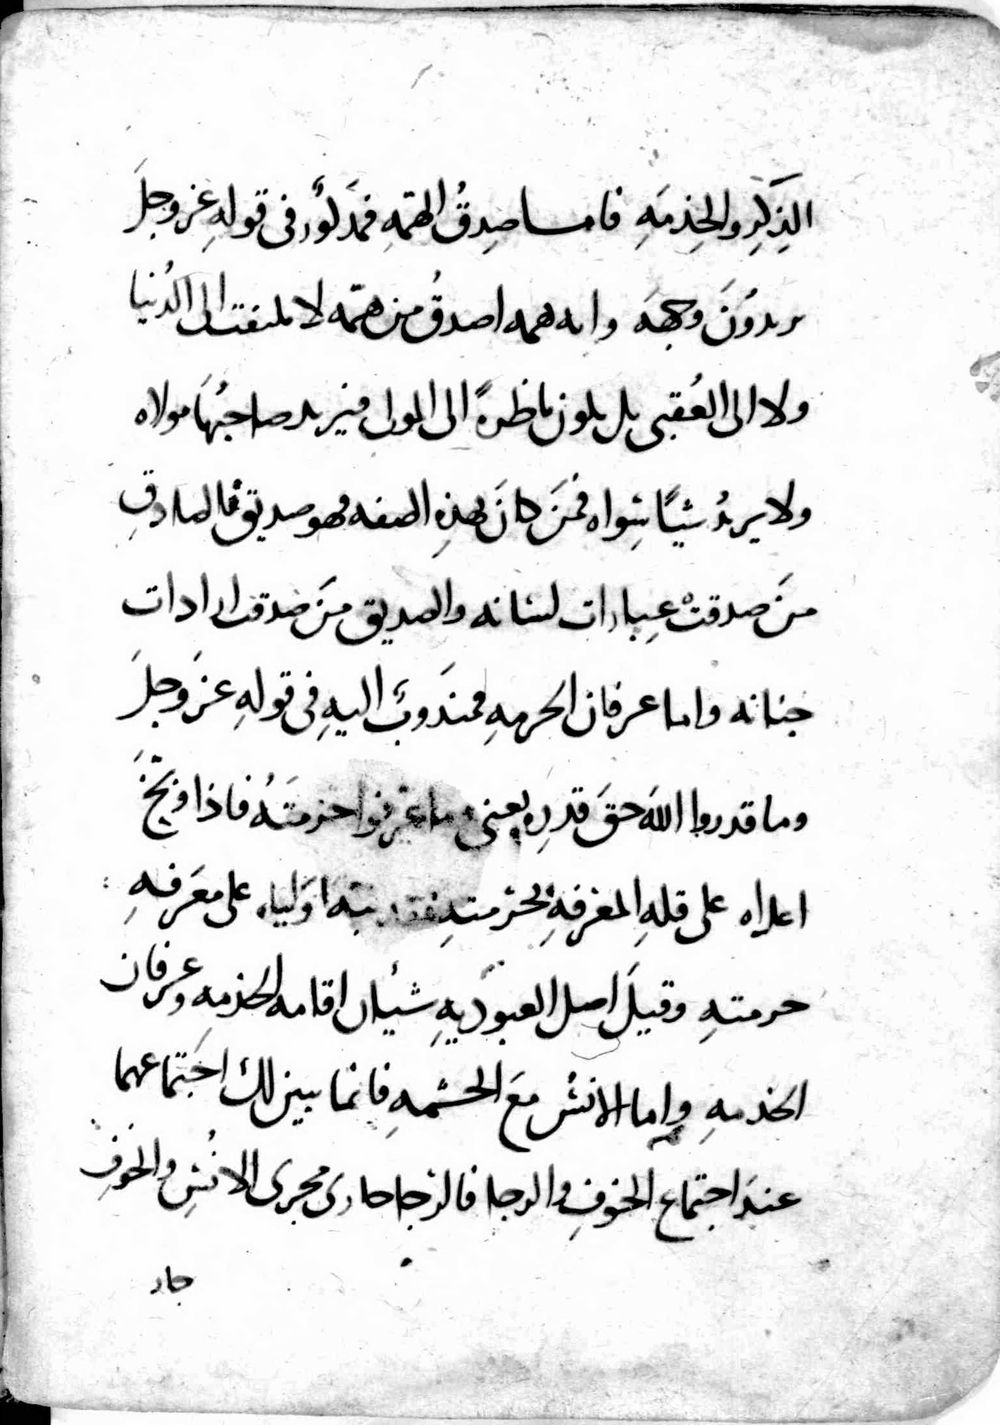 الذِكرِ والخِذمَهِ فامسا صِدقُ الهمّهِ فمذكورٌ فى قولهِ عز وجلَ
يريدوُنَ وجهَهَ وايه همه اصدقُ من همّه لا تلتفت الى الدُنيا
ولا الى العُقبى بل يكون ناظرهً الى المولى فيريد صاحبُهَا مولاه
ولا يريدُ شيًا سِواه فمَن كانَ بهذِهِ الصفه فهو صديق فالصادقِ
مَن صدقتْ عِبارات لسَانه والصديق مَن صَدقت ارادات
جنانه واما عرفان الحرمهِ فمندَوبٌ اليهِ فى قولهِ عزَ وجلَ
وما قدروا اللهَ حقَ قدرِه يعنى وما عَرفوا حُرمتَهُ فاذا وبّخَ
اعداه على قلهِ المعرفهِ بحُرمتهِ فقد نبّه اوَلياه على معَرفهِ
حرمتهِ وقيلَ اصل العبوديهِ شيأن اقامه الخذمه وعرفان
الخذمهِ واما الانسُ معَ الحشمهِ فانما يبين لك اجَتماعهما
عندَ اجتماع الخوفِ والرجا فالرجا جارى مجرى الانُسِ والخوَفِ
جار